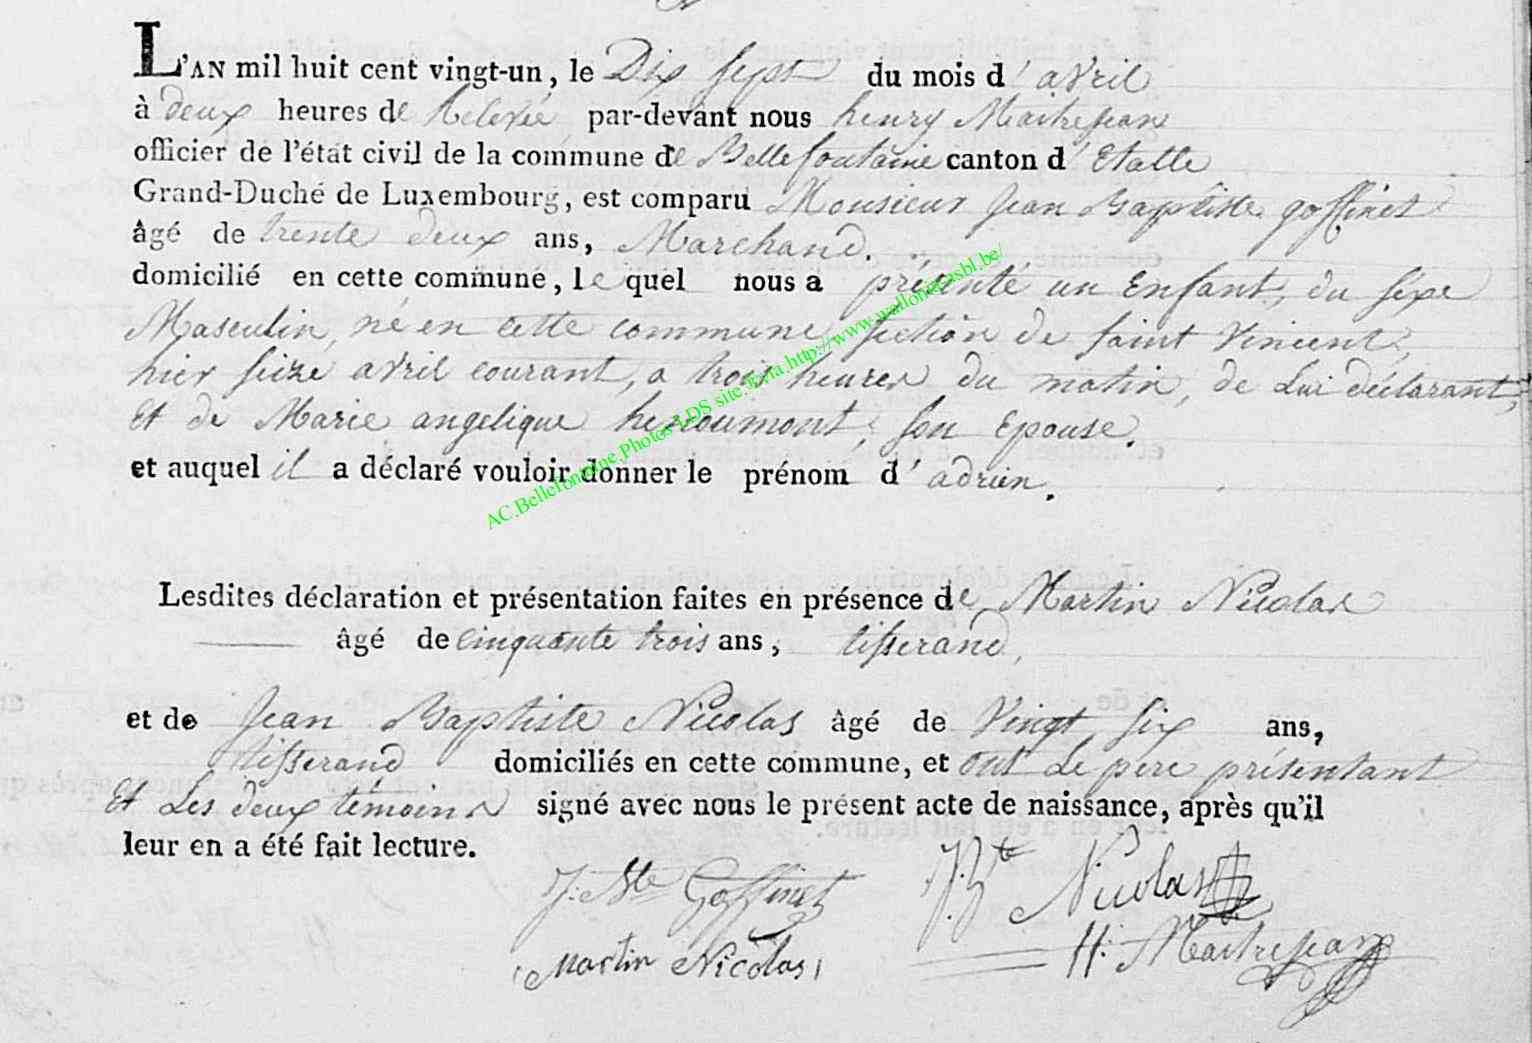 L'AN mil huit cent vingt-un, le Dix sept du mois d'avril
à deux heures de Relevée par-devant nous henry Maitrejean
officier de l'état civil de la commune de Bellefontaine canton d'Etalle
Grand-Duché de Luxembourg, est comparu Monsieur Jean Baptiste goffinet
âgé de trente deux ans, Marchand.
domicilié en cette commune, le quel nous a présenté un Enfant, du sexe
Masculin, né en cette commune, section de saint Vincent,
hier seize avril courant, a trois heures du matin, de Lui déclarant,
et de Marie angelique henoumont, son Epouse.
et auquel il a déclaré vouloir donner le prénom d'adrien.
AC.Bellefontaine.Photos LDS site: http://www.wallonia.asbl.be/
Lesdites déclaration et présentation faites en présence de Martin Nicolas
âgé de cinquante trois ans, tisserand,
et de Jean Baptiste Nicolas âgé de Vingt six ans,
tisserand domiciliés en cette commune, et ont Le pere présentant
Et Les deux témoins signé avec nous le présent acte de naissance, après qu'il
leur en a été fait lecture.
J. Bte Goffinet J. Bte Nicolas
Martin Nicolas H. Maitrejean